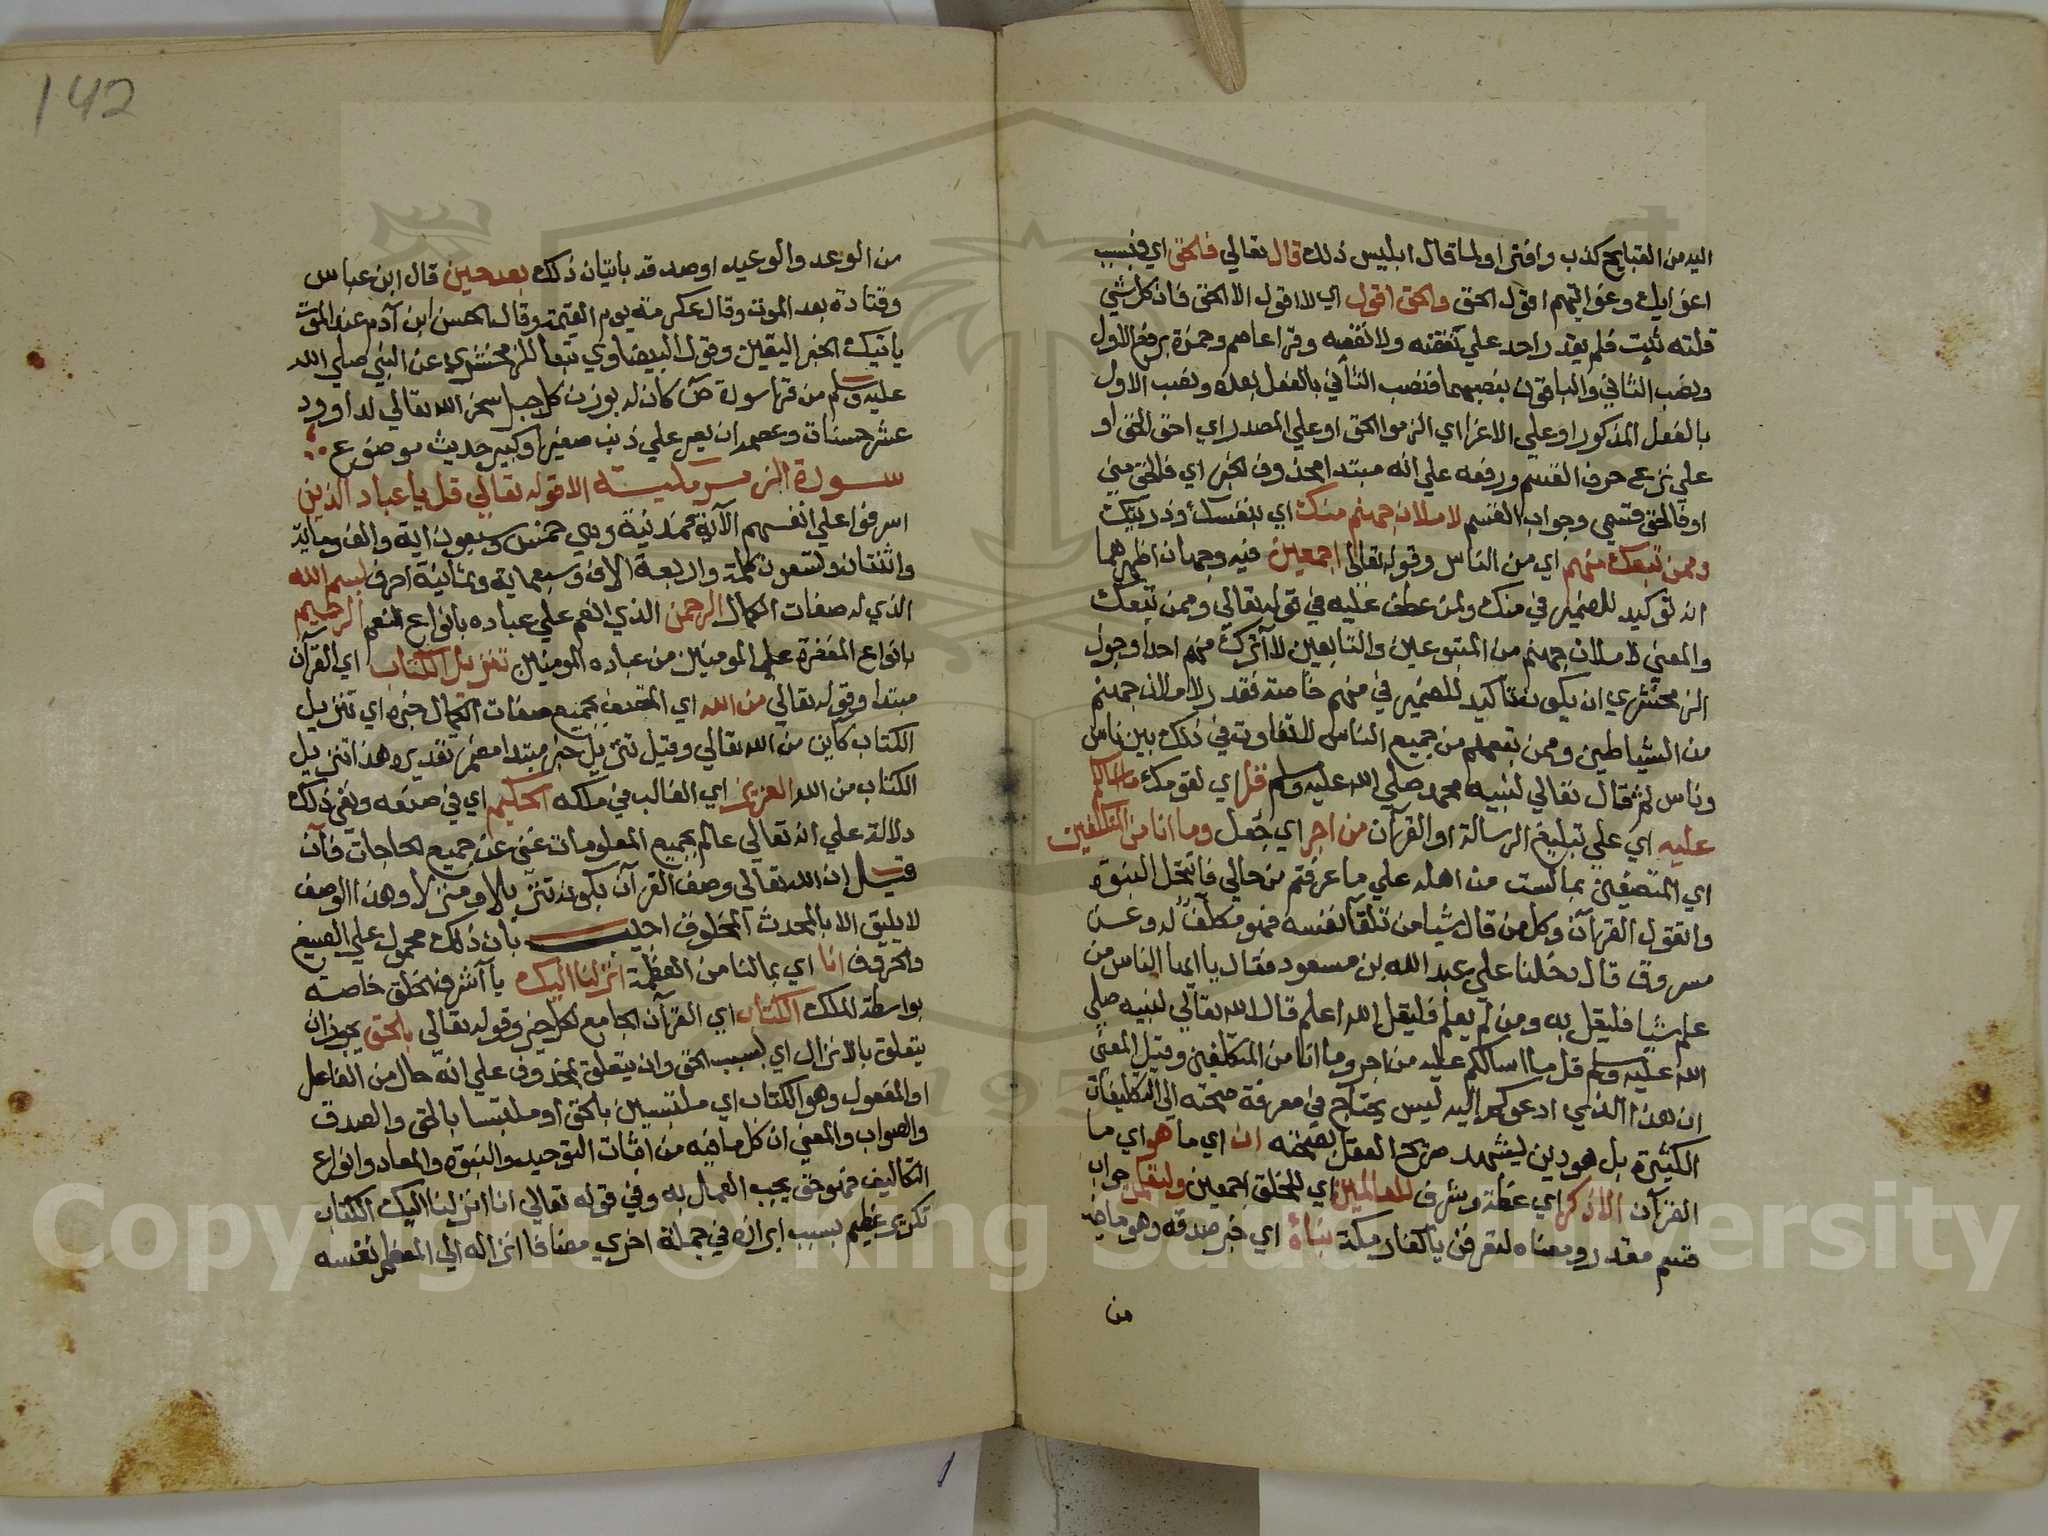 اليه من القبايح كذب وافترا ولما قال ابليس ذلك قال تعالي فالحق اي فبسبب
اغوايك وغوايتهم اقول الحق والحق اقول اي لا اقول الا الحق فان كل شي
قلته ثبت فلم يقدر احد علي نقضه ولا نقصه وقرا عاصم وحمزة برفع الاول
ونصب الثاني والباقون بنصبهما فنصب الثاني بالفعل بعده ونصب الاول
بالفعل المذكور او علي الاغرا اي الزموا الحق او علي المصدر اي احق الحق او
علي نزع حرف القسم ورفعه علي انه مبتدا محذوف الخبر اي فالحق مني
او فالحق قسمي وجواب القسم لاملان جهنم منك اي بنفسك وذريتك
وممن تبعك منهم اي من الناس وقوله تعالي اجمعين فيه وجهان اظهرهما
انه توكيد للضمير في منك ولمن عطف عليه في قوله تعالي وممن تبعك
والمعني لاملان جهنم من المتبوعين والتابعين لا اترك منهم احدا وجوز
الزمخشري ان يكون تاكيد للضمير في منهم خاصة فقدر لاملان جهنم
من الشياطين وممن تبعهم من جميع الناس لا تفاوت في ذلك بين ناس
وناس ثم قال تعالي لنبيه محمد صلي الله عليه وسلم قل اي لقومك ما اسالكم
عليه اي علي تبليغ الرسالة او القرآن من اجر اي جعل وما انا من المتكلفين
اي المتصفين بما لست من اهله علي ما عرفتم من حالي فانتحل النبوة
واتقول القرآن وكل من قال شيا من تلقا نفسه فهو مكلف له وعن
مسروق قال دخلنا علي عبد الله بن مسعود فقال يا ايها الناس من
علم شيا فليقل به ومن لم يعلم فليقل الله اعلم قال الله تعالي لنبيه صلي
الله عليه وسلم قل ما اسالكم عليه من اجر وما انا من المتكلفين وقيل المعني
ان هذا الذي ادعوكم اليه ليس يحتاج في معرفة صحته الي التكليفات
الكثيرة بل هو دين يشهد صريح العقل بصحته ان اي ما هو اي ما
القرآن الا ذكر اي عظة وشرف للعالمين اي للخلق اجمعين ولتعلمن جواب
قسم مقدر ومعناه لتعرفن يا كفار مكة نباه اي خبر صدقه وهو ما فيه
من
142
من الوعد والوعيد او صدقه باتيان ذلك بعد حين قال ابن عباس
وقتادة بعد الموت وقال عكرمة يوم القيمة وقال الحسن ابن آدم عند الموت
ياتيك الخبر اليقين وقول البيضاوي تبعا للزمخشري عن النبي صلي الله
عليه وسلم من قرا سورة ص كان له بوزن كل جبل سخر الله تعالي لداوود
عشر حسنات وعصمه ان يصر علي ذنب صغير او كبير حديث موضوع
سورة الزمر مكية الا قوله تعالي قل يا عباد الذين
اسرفوا علي انفسهم الآية فمدنية وهي خمس وسبعون اية والف ومايه
واثنتان وتسعون كلمة واربعة الاف وسبعماية وثمانية احرف بسم الله
الذي له صفات الكمال الرحمن الذي انعم علي عباده بانواع النعم الرحيم
بانواع المغفرة علي المومنين من عباده المومنين تنزيل الكتاب اي القرآن
مبتدا وقوله تعالي من الله اي المتصف بجميع صفات الكمال خبره اي تنزيل
الكتاب كاين من الله تعالي وقيل تنزيل خبر مبتدا مضمر تقديره هذا تنزيل
الكتاب من الله العزيز اي الغالب في ملكه الحكيم اي في صنعه وفي ذلك
دلالة علي انه تعالي عالم بجميع المعلومات غني عن جميع الحاجات فآن
قيل ان الله تعالي وصف القرآن بكونه تنزيلا ومنزلا وهذا الوصف
لا يليق الا بالمحدث المخلوق اجيب بان ذلك محمول علي الصيغ
والحروف انا اي بما لنا من العظمة انزلنا اليك يا آشرف الخلق خاصة
بواسطة الملك الكتاب اي القرآن الجامع لكل خير وقوله تعالي بالحق يجوز ان
يتعلق بالانزال اي بسبب الحق وان يتعلق بمحذوف علي انه حال من الفاعل
او المفعول وهو الكتاب اي ملتبسين بالحق او ملتبسا بالحق والصدق
والصواب والمعني ان كل ما فيه من اثبات التوحيد والنبوة والمعاد وانواع
التكاليف فهو حق يجب العمل به وفي قوله تعالي انا انزلنا اليك الكتاب
تكرير عظيم بسبب ابرازه في جملة اخري مضافا انزاله الي المعظم نفسه
Copyright © King Saud University